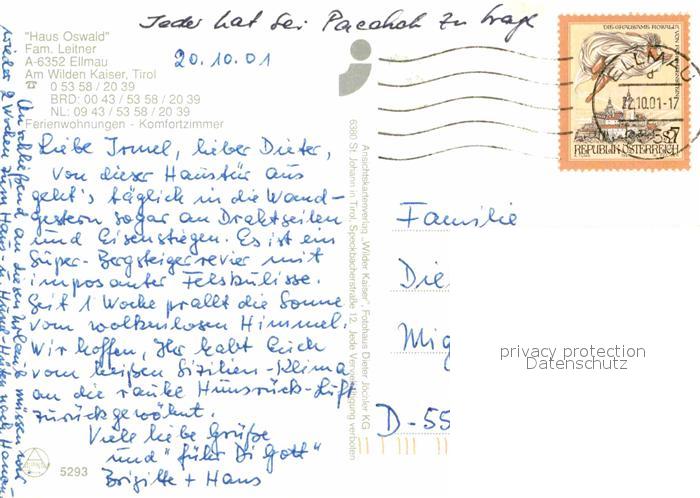 Jeder hat sei Packerl zu trage
"Haus Oswald"
Fam. Leitner
A-6352 Ellmau
Am Wilden Kaiser, Tirol
0 53 58 / 20 39
BRD: 00 43 / 53 58 / 20 39
NL: 09 43 / 53 58 / 20 39
Ferienwohnungen - Komfortzimmer
20.10.01
Liebe Irmel, lieber Dieter,
von dieser Haustür aus
geht's täglich in die Wand-
gestern sogar an Drahtseilen
und Eisenstiegen. Es ist ein
Super-Bergsteigerrevier mit
imposanter Felskulisse.
Seit 1 Woche prallt die Sonne
vom wolkenlosen Himmel.
Wir hoffen, Ihr habt Euch
vom heißen Sizilien-Klima
an die rauhe Hunsrück-Luft
zurückgewöhnt.
Viele liebe Grüße
und "führ Di Gott"
Brigitte + Hans
Anschließend an diesen Urlaub müssen wir
wieder 2 Wochen zum Haus- u. Hund-Hüten nach Hanau
5293
Ansichtskartenverlag „Wilder Kaiser", Fotohaus Dieter Jöchler KG
6380 St. Johann in Tirol, Speckbacherstraße 12, Jede Vervielfältigung verboten
DIE GRAUSAME ROSALIA
S 7
REPUBLIK ÖSTERREICH
ELLMAU
22.10.01-17
Familie
Die
Mig
D-55
privacy protection
Datenschutz